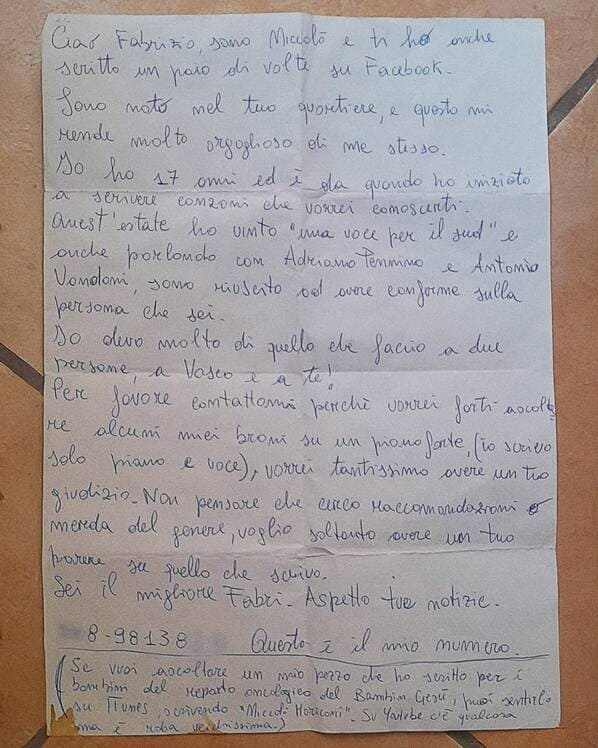 Ciao Fabrizio, sono Niccolò e ti ho anche
scritto un paio di volte su Facebook.
Sono nato nel tuo quartiere, e questo mi
rende molto orgoglioso di me stesso.
Io ho 17 anni ed è da quando ho iniziato
a scrivere canzoni che vorrei conoscerti.
Quest'estate ho vinto "una voce per il sud" e
anche parlando con Adriano Pennino e Antonio
Vandoni, sono riuscito ad avere conferme sulla
persona che sei.
Io devo molto di quello che faccio a due
persone, a Vasco e a te!
Per favore contattami perchè vorrei farti ascolta
re alcuni miei brani su un pianoforte, (io scrivo
solo piano e voce), vorrei tantissimo avere un tuo
giudizio. Non pensare che cerco raccomandazioni o
merda del genere, voglio soltanto avere un tuo
parere su quello che scrivo.
Sei il migliore Fabri. Aspetto tue notizie.
8-98138 Questo è il mio numero.
(Se vuoi ascoltare un mio pezzo che ho scritto per i
bambini del reparto oncologico del Bambin Gesù, puoi sentirlo
su ITunes, scrivendo "Niccolò Moriconi". Su Youtube c'è qualcosa
ma è roba vecchissima.)